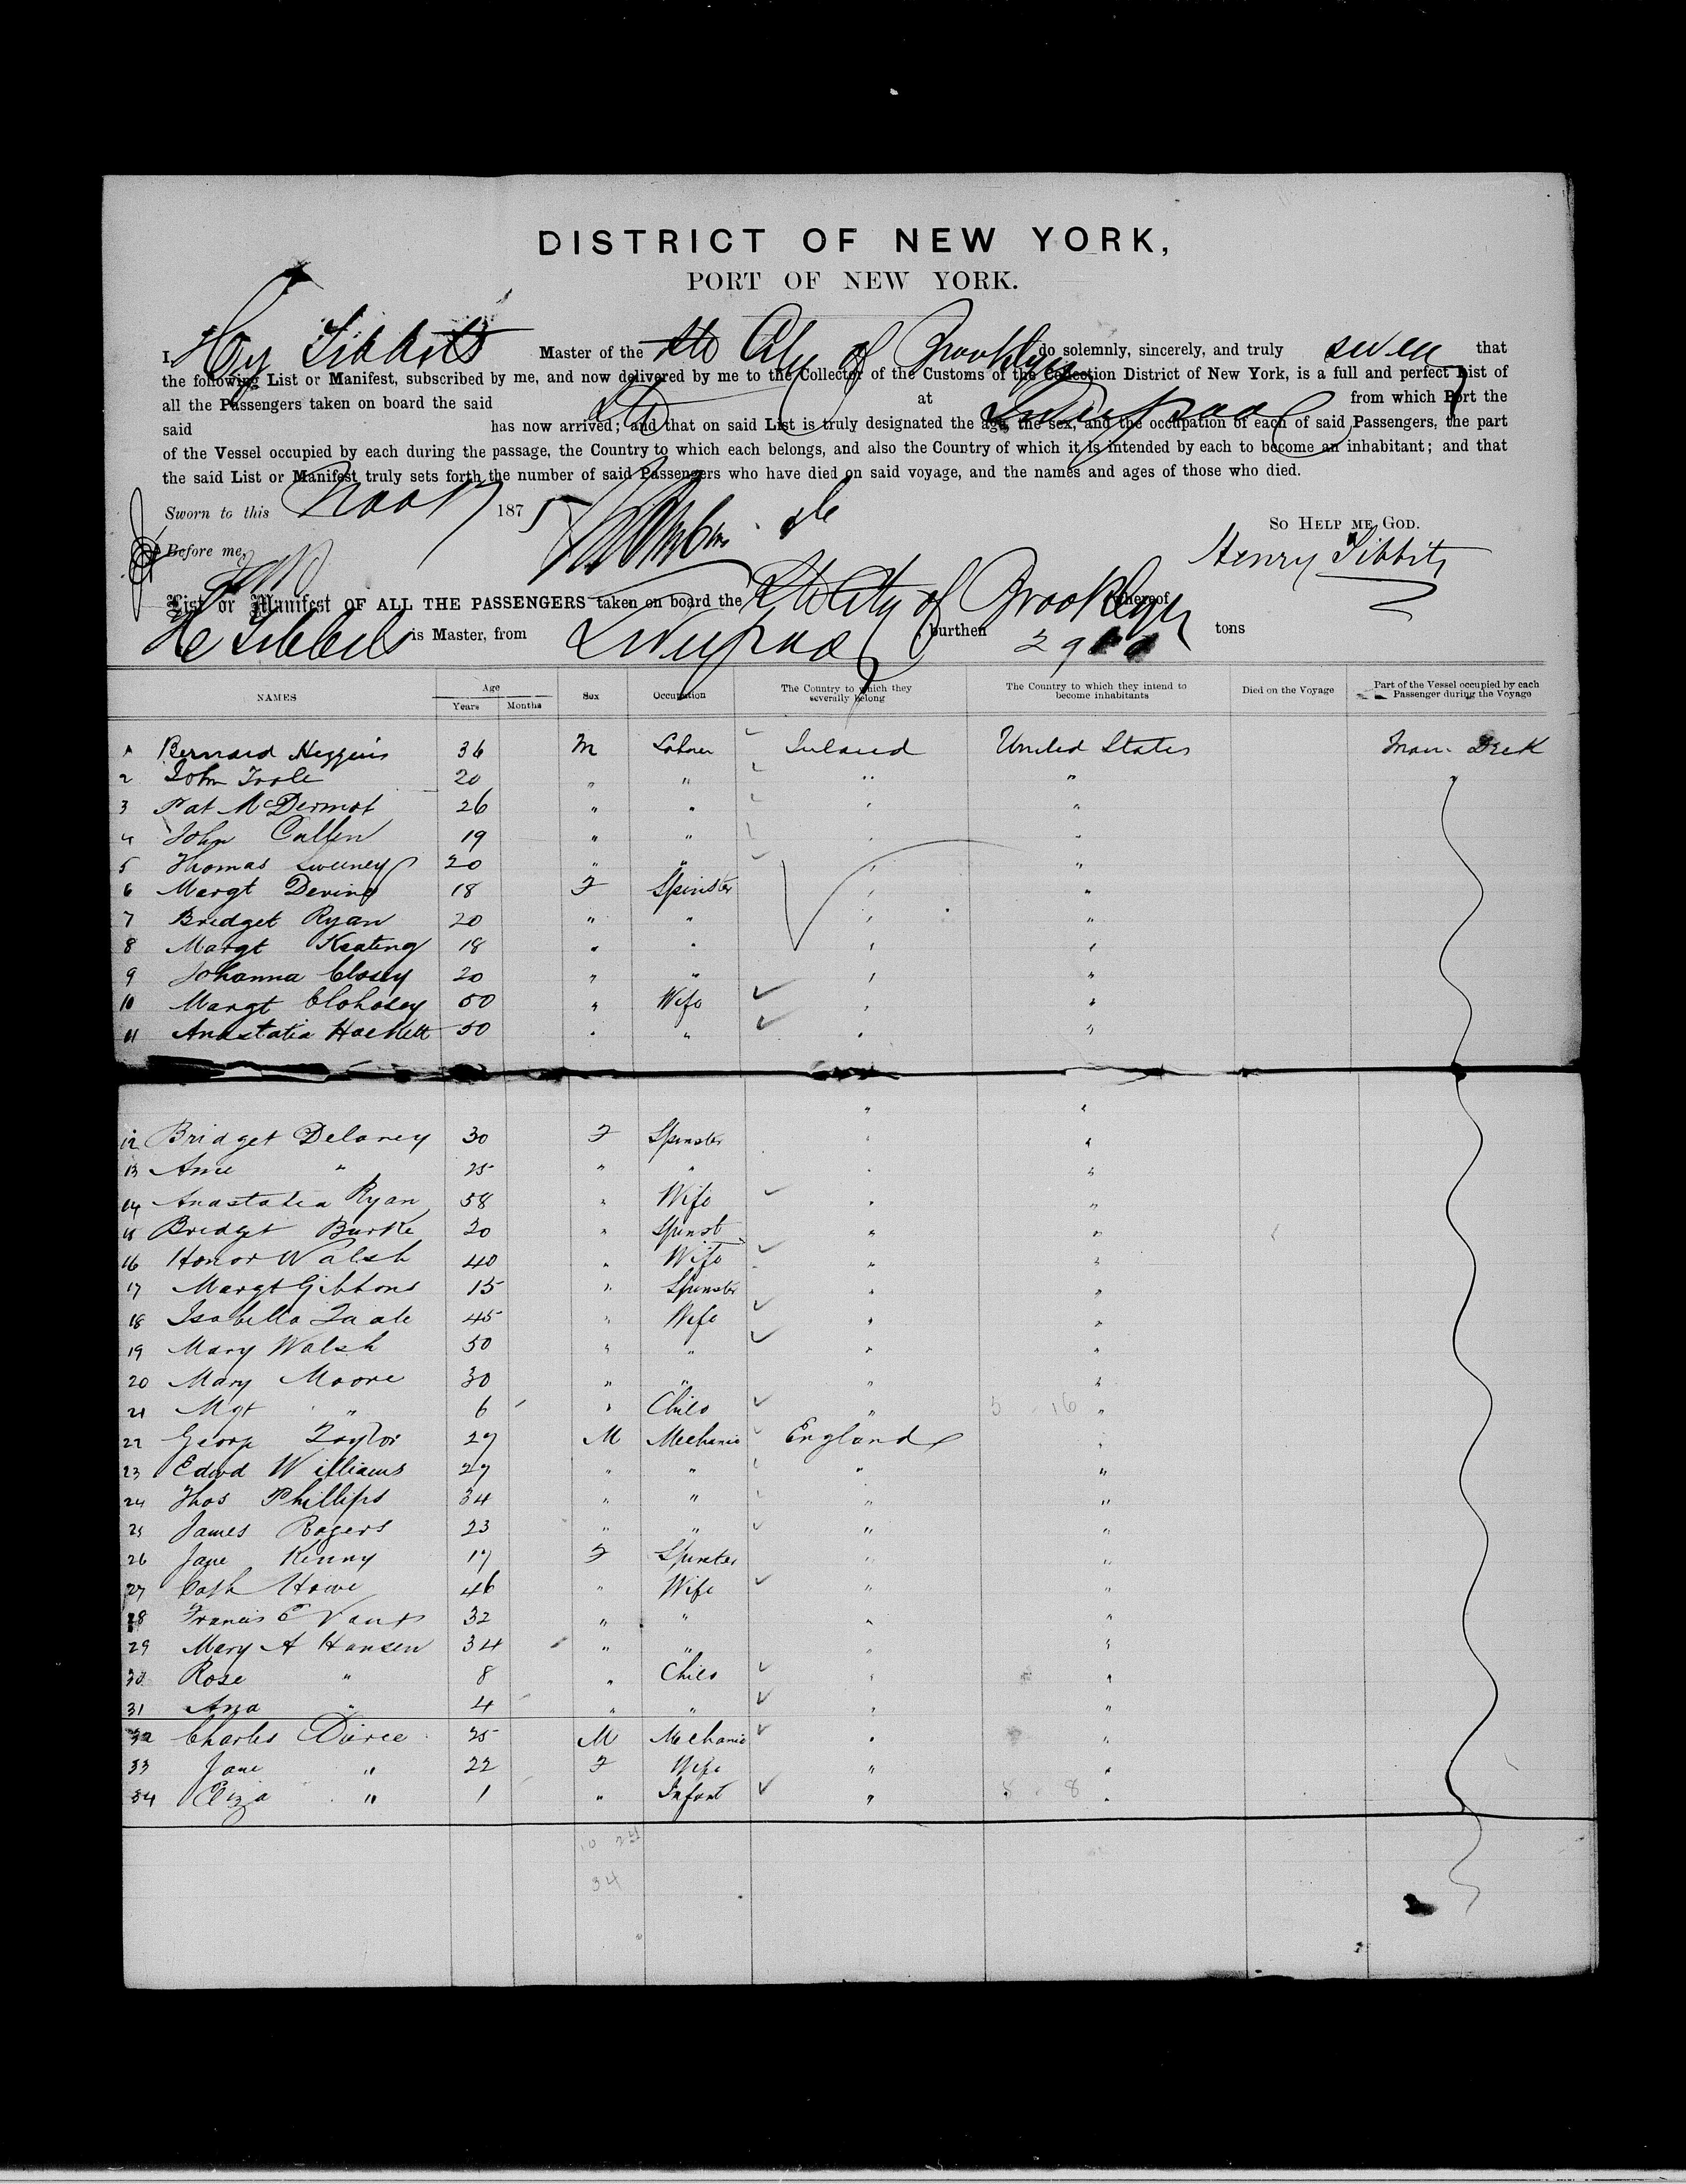 DISTRICT OF NEW YORK,
PORT OF NEW YORK.
I Hy Tibbits Master of the Str City of Brooklyn do solemnly, sincerely, and truly swear that
the following List or Manifest, subscribed by me, and now delivered by me to the Collector of the Customs of the Collection District of New York, is a full and perfect List of
all the Passengers taken on board the said Str at Liverpool from which Port the
said has now arrived; and that on said List is truly designated the age, the sex, and the occupation of each of said Passengers, the part
of the Vessel occupied by each during the passage, the Country to which each belongs, and also the Country of which it is intended by each to become an inhabitant; and that
the said List or Manifest truly sets forth the number of said Passengers who have died on said voyage, and the names and ages of those who died.
Sworn to this Nov 17 1875
So Help me God.
Before me,
Henry Tibbits
List or Manifest OF ALL THE PASSENGERS taken on board the Str City of Brooklyn whereof
H Tibbits is Master, from Liverpool, burthen tons
NAMES Age Years Months Sex Occupation The Country to which they severally belong The Country to which they intend to become inhabitants Died on the Voyage Part of the Vessel occupied by each Passenger during the Voyage
1 Bernard Higgins 36 M Labner Ireland United States Main Deck
2 John Toole 20 " " " "
3 Pat McDermot 26 " " " "
4 John Cullen 19 " " " "
5 Thomas Sweeney 20 " " " "
6 Margt Devine 18 F Spinster " "
7 Bridget Ryan 20 " " " "
8 Margt Keating 18 " " " "
9 Johanna Closey 20 " " " "
10 Margt Clohosey 50 " Wife " "
11 Anastatia Hackett 50 " " " "
12 Bridget Delaney 30 F Spinster " "
13 Anne " 25 " " " "
14 Anastatia Ryan 58 " Wife " "
15 Bridget Burke 20 " Spinst " "
16 Honor Walsh 40 " Wife " "
17 Margt Gibbons 15 " Spinster " "
18 Isabella 45 " Wife " "
19 Mary Walsh 50 " " " "
20 Mary Moore 30 " " " "
21 Mgt " 6 " Child " 5 16 "
22 George Taylor 27 M Mechanic England "
23 Edwd Williams 27 " " " "
24 Thos Phillips 34 " " " "
25 James Rogers 23 " " " "
26 Jane Kenny 17 F Spinster " "
27 Cath Howe 46 " Wife " "
28 Francis Evans 32 " " " "
29 Mary A Hansen 34 " " " "
30 Rose " 8 " Child " "
31 Ana " 4 " " " "
32 Charles Pierce 25 M Mechanic " "
33 Jane " 22 F Wife " "
34 Eliza " 1 " Infant " 5 8 "
10 24
34